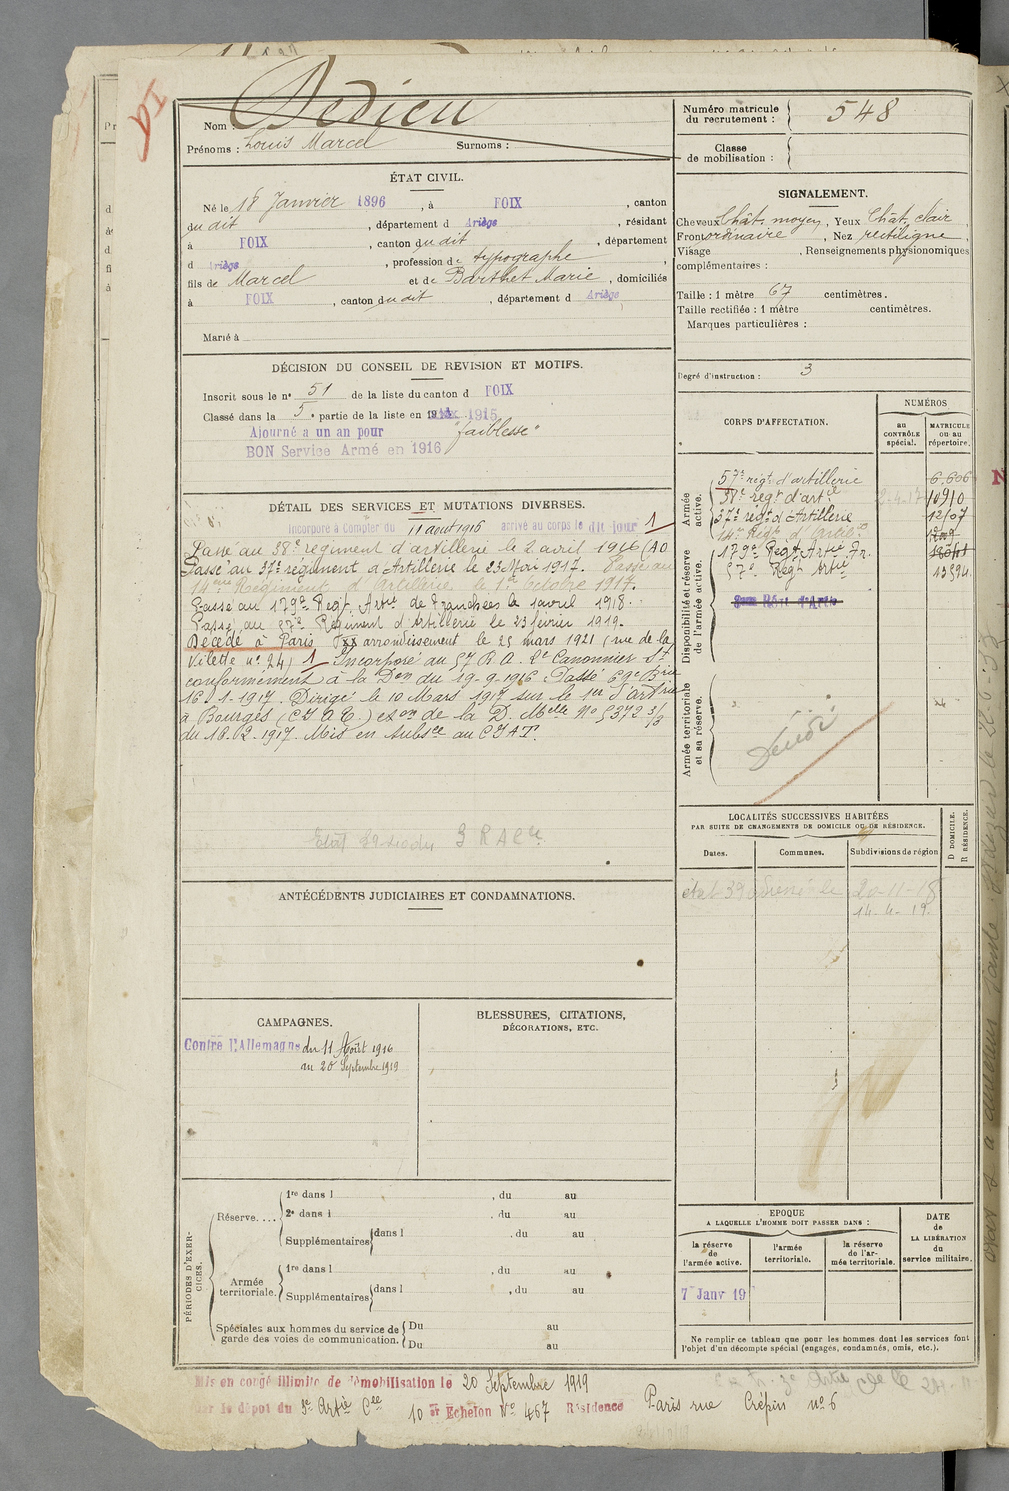 Nom : Dedieu
Prénoms : Louis Marcel Surnoms :
Numéro matricule
du recrutement : 548
Classe
de mobilisation :
ÉTAT CIVIL.
Né le 18 Janvier 1896, à FOIX, canton
du dit, département d Ariège, résidant
à FOIX, canton du dit, département
d Ariège, profession de typographe,
fils de Marcel et de Barthet Marie, domiciliés
à FOIX, canton du dit, département d Ariège
Marié à
SIGNALEMENT.
Cheveux Chât. moyen, Yeux Chât. clair,
Front ordinaire, Nez rectiligne,
Visage , Renseignements physionomiques
complémentaires :
Taille : 1 mètre 67 centimètres.
Taille rectifiée : 1 mètre centimètres.
Marques particulières :
Degré d'instruction : 3
DÉCISION DU CONSEIL DE REVISION ET MOTIFS.
Inscrit sous le n° 51 de la liste du canton d FOIX
Classé dans la 5e partie de la liste en 1915
Ajourné a un an pour "faiblesse"
BON Service Armé en 1916
DÉTAIL DES SERVICES ET MUTATIONS DIVERSES.
Incorporé à Compter du 11 août 1916 arrivé au corps le dit jour 1
Passé au 38e régiment d'artillerie le 2 avril 1916
Passé au 37e régiment d'Artillerie le 23 Mai 1917. Passé au
14eme Régiment d'Artillerie le 1er Octobre 1917.
Passé au 179e Regt Artie de Tranchées le 1 avril 1918.
Passé au 57e Régiment d'Artillerie le 23 février 1919.
Décédé à Paris XX arrondissement le 25 mars 1921 (rue de la
Vilette n° 24) 1 Incorporé au 57 R.A. 2e Canonnier St
conformément à la Don du 19-9-1916. Passé 69e Brie
16-1-1917. Dirigé le 10 Mars 1917 sur le 1er d'artrie
à Bourges de la D. Melle No 5372 3/3
du 18-02-1917. Mis en subsce au
3 R A Cie
CORPS D'AFFECTATION.
NUMÉROS
au
CONTRÔLE
spécial.
MATRICULE
ou au
répertoire.
Armée
active.
57e régt d'artillerie 6.606
38e regt d'artie 10910
37e régt d'Artillerie 12107
14e Régt d'Artie
Disponibilité et réserve
de l'armée active.
179e Regt Artie Tr.
57e Regt Artie 13594
Armée territoriale
et sa réserve.
LOCALITÉS SUCCESSIVES HABITÉES
PAR SUITE DE CHANGEMENTS DE DOMICILE OU DE RÉSIDENCE.
Dates.
Communes.
Subdivisions de région
D DOMICILE.
R RÉSIDENCE.
20-11-18
14-4-19.
ANTÉCÉDENTS JUDICIAIRES ET CONDAMNATIONS.
CAMPAGNES.
Contre l'Allemagne du 11 Août 1916
au 20 Septembre 1919
BLESSURES, CITATIONS,
DÉCORATIONS, ETC.
PÉRIODES D'EXER-
CICES.
Réserve....
1re dans l , du au
2e dans l , du au
Supplémentaires dans l , du au
Armée
territoriale.
1re dans l , du au
Supplémentaires dans l , du au
Spéciales aux hommes du service de
garde des voies de communication.
Du au
Du au
EPOQUE
A LAQUELLE L'HOMME DOIT PASSER DANS :
la réserve
de
l'armée active.
l'armée
territoriale.
la réserve
de l'ar-
mée territoriale.
DATE
de
LA LIBÉRATION
du
service militaire.
7 Janv 19
Ne remplir ce tableau que pour les hommes dont les services font
l'objet d'un décompte spécial (engagés, condamnés, omis, etc.).
Mis en congé illimité de démobilisation le 20 Septembre 1919
par le dépôt du 3e Artie Cle 10 er Echelon No 467 Résidence Paris rue Crépin n° 6